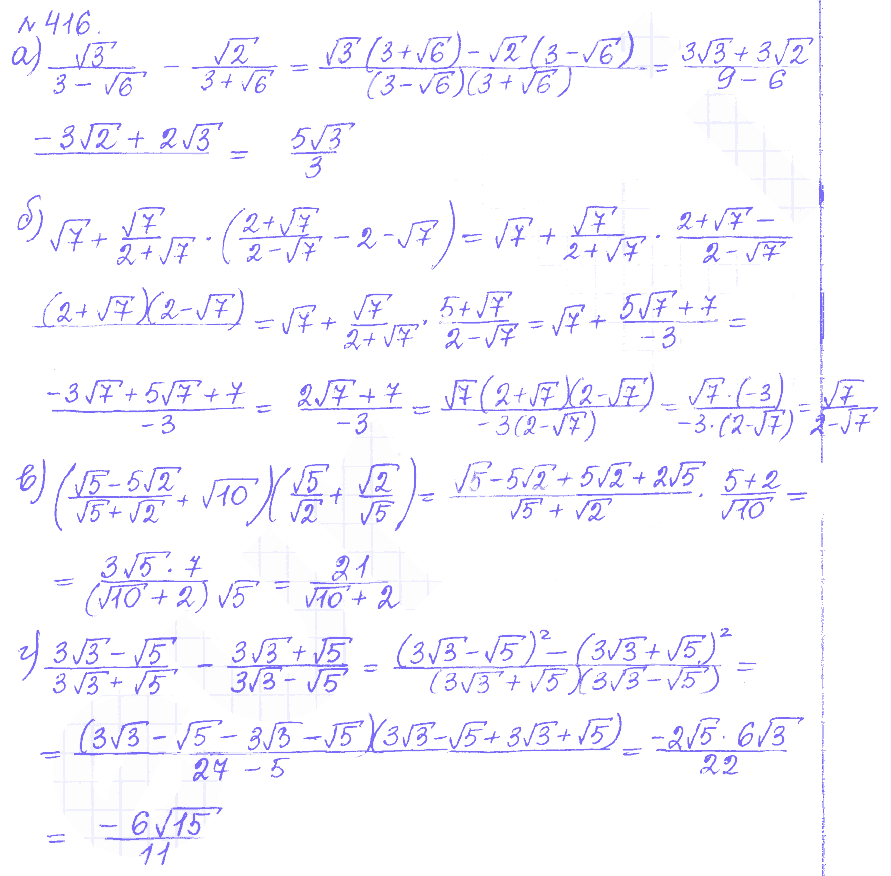 № 416.
а) √3/(3 − √6) − √2/(3 + √6) = (√3 (3 + √6) − √2 (3 − √6))/((3 − √6)(3 + √6)) = (3√3 + 3√2)/(9 − 6)
(− 3√2 + 2√3)/ = 5√3/3
б) √7 + √7/(2 + √7) · ((2 + √7)/(2 − √7) − 2 − √7) = √7 + √7/(2 + √7) · (2 + √7 −)/(2 − √7)
(2 + √7)(2 − √7)/ = √7 + √7/(2 + √7) · (5 + √7)/(2 − √7) = √7 + (5√7 + 7)/(−3) =
(−3√7 + 5√7 + 7)/(−3) = (2√7 + 7)/(−3) = √7 (2 + √7)(2 − √7)/(−3(2 − √7)) = √7 · (−3)/(−3 · (2 − √7)) = √7/(2 − √7)
в) ((√5 − 5√2)/(√5 + √2) + √10)(√5/√2 + √2/√5) = (√5 − 5√2 + 5√2 + 2√5)/(√5 + √2) · (5 + 2)/√10 =
= 3√5 · 7/((√10 + 2) √5) = 21/(√10 + 2)
г) (3√3 − √5)/(3√3 + √5) − (3√3 + √5)/(3√3 − √5) = ((3√3 − √5)² − (3√3 + √5)²)/((3√3 + √5)(3√3 − √5)) =
= (3√3 − √5 − 3√3 − √5)(3√3 − √5 + 3√3 + √5)/(27 − 5) = −2√5 · 6√3/22
= − 6√15/11